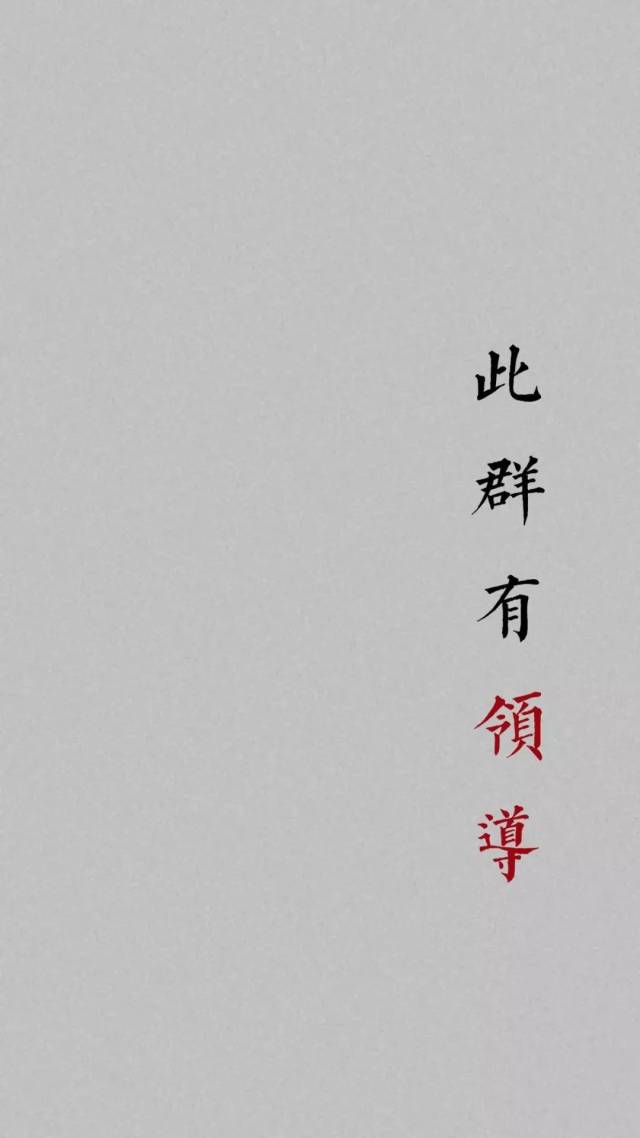 此群有領導